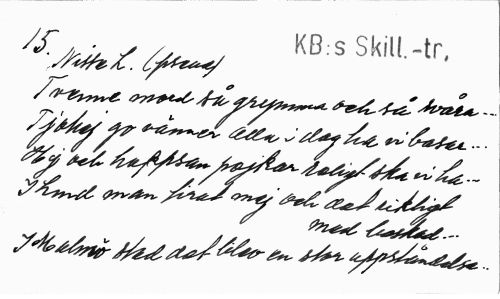 15.
KB:s Skill.-tr.
Nisse L. (pseud)
Trenne mord så grymma och så svåra...
Tjohej go vänner alla i dag ha vi basar...
Hej och hoppsan pojkar roligt ska vi ha...
I Lund man firat mej och det riktigt
med besked...
I Malmö stad det blev en stor uppståndelse..